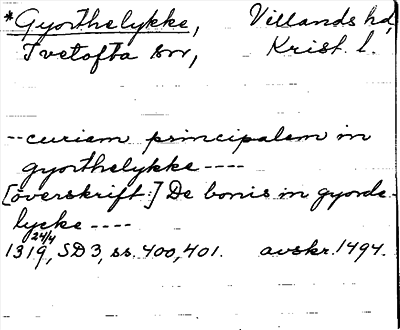 *Gyorthelykke, Villands hd,
Tvetofta sn, Krist. l.
-- curiam principalem in
gyorthelykke ----
[överskrift:] De bonis in gyorde-
lycke ----
24/4
1319, SD 3, ss. 400, 401. avskr. 1494.